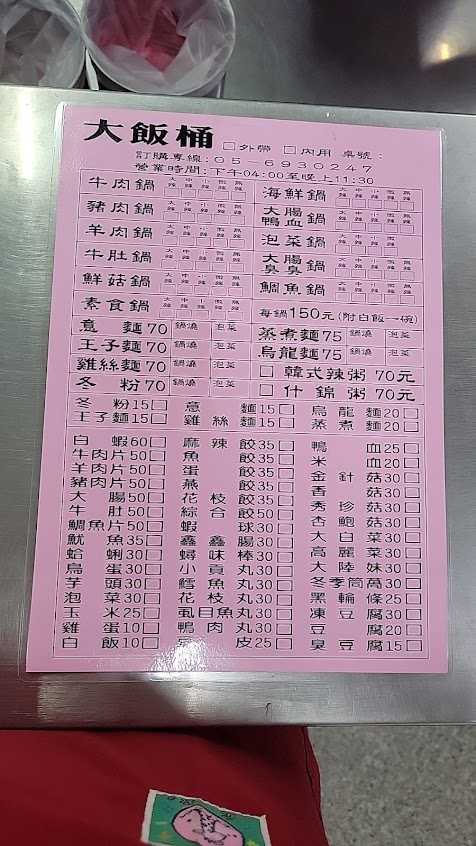 大飯桶 □外帶 □內用 桌號：
訂購專線：05-6930247
營業時間：下午04:00至晚上11:30
牛肉鍋 大辣 中辣 小辣 微辣 無辣 海鮮鍋 大辣 中辣 小辣 微辣 無辣
豬肉鍋 大辣 中辣 小辣 微辣 無辣 大腸鴨血鍋 大辣 中辣 小辣 微辣 無辣
羊肉鍋 大辣 中辣 小辣 微辣 無辣 泡菜鍋 大辣 中辣 小辣 微辣 無辣
牛肚鍋 大辣 中辣 小辣 微辣 無辣 大腸臭臭鍋 大辣 中辣 小辣 微辣 無辣
鮮菇鍋 大辣 中辣 小辣 微辣 無辣 鯛魚鍋 大辣 中辣 小辣 微辣 無辣
素食鍋 大辣 中辣 小辣 微辣 無辣 每鍋150元(附白飯一碗)
意麵70 鍋燒 泡菜 蒸煮麵75 鍋燒 泡菜
王子麵70 鍋燒 泡菜 烏龍麵75 鍋燒 泡菜
雞絲麵70 鍋燒 泡菜 □韓式辣粥 70元
冬粉70 鍋燒 泡菜 □什錦粥 70元
冬粉15□ 意麵15□ 烏龍麵20□
王子麵15□ 雞絲麵15□ 蒸煮麵20□
白蝦60□ 麻辣餃35□ 鴨血25□
牛肉片50□ 魚餃35□ 米血20□
羊肉片50□ 蛋餃35□ 金針菇30□
豬肉片50□ 燕餃35□ 香菇30□
大腸50□ 花枝餃35□ 秀珍菇30□
牛肚50□ 綜合餃50□ 杏鮑菇30□
鯛魚片50□ 蝦球30□ 大白菜30□
魷魚35□ 鑫鑫腸30□ 高麗菜30□
蛤蜊30□ 蟳味棒30□ 大陸妹30□
鳥蛋30□ 小貢丸30□ 冬季茼萵30□
芋頭30□ 鱈魚丸30□ 黑輪條25□
泡菜30□ 花枝丸30□ 凍豆腐30□
玉米25□ 虱目魚丸30□ 豆腐20□
雞蛋10□ 鴨肉丸30□ 臭豆腐15□
白飯10□ 豆皮25□